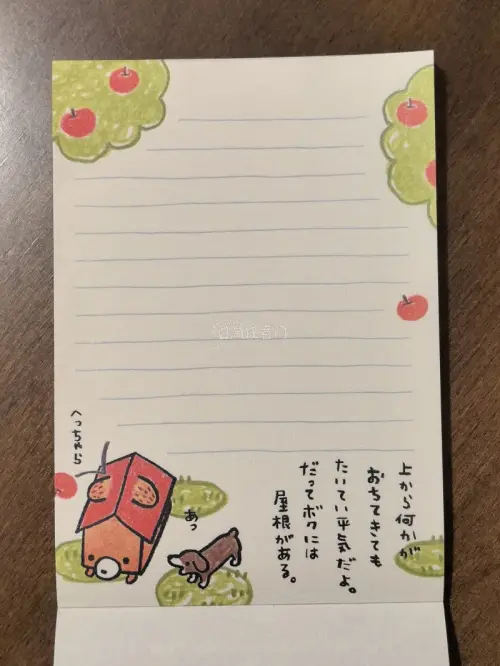 上から何かが
おちてきても
たいてい平気だよ。
だってボクには
屋根がある。
あっ
へっちゃら